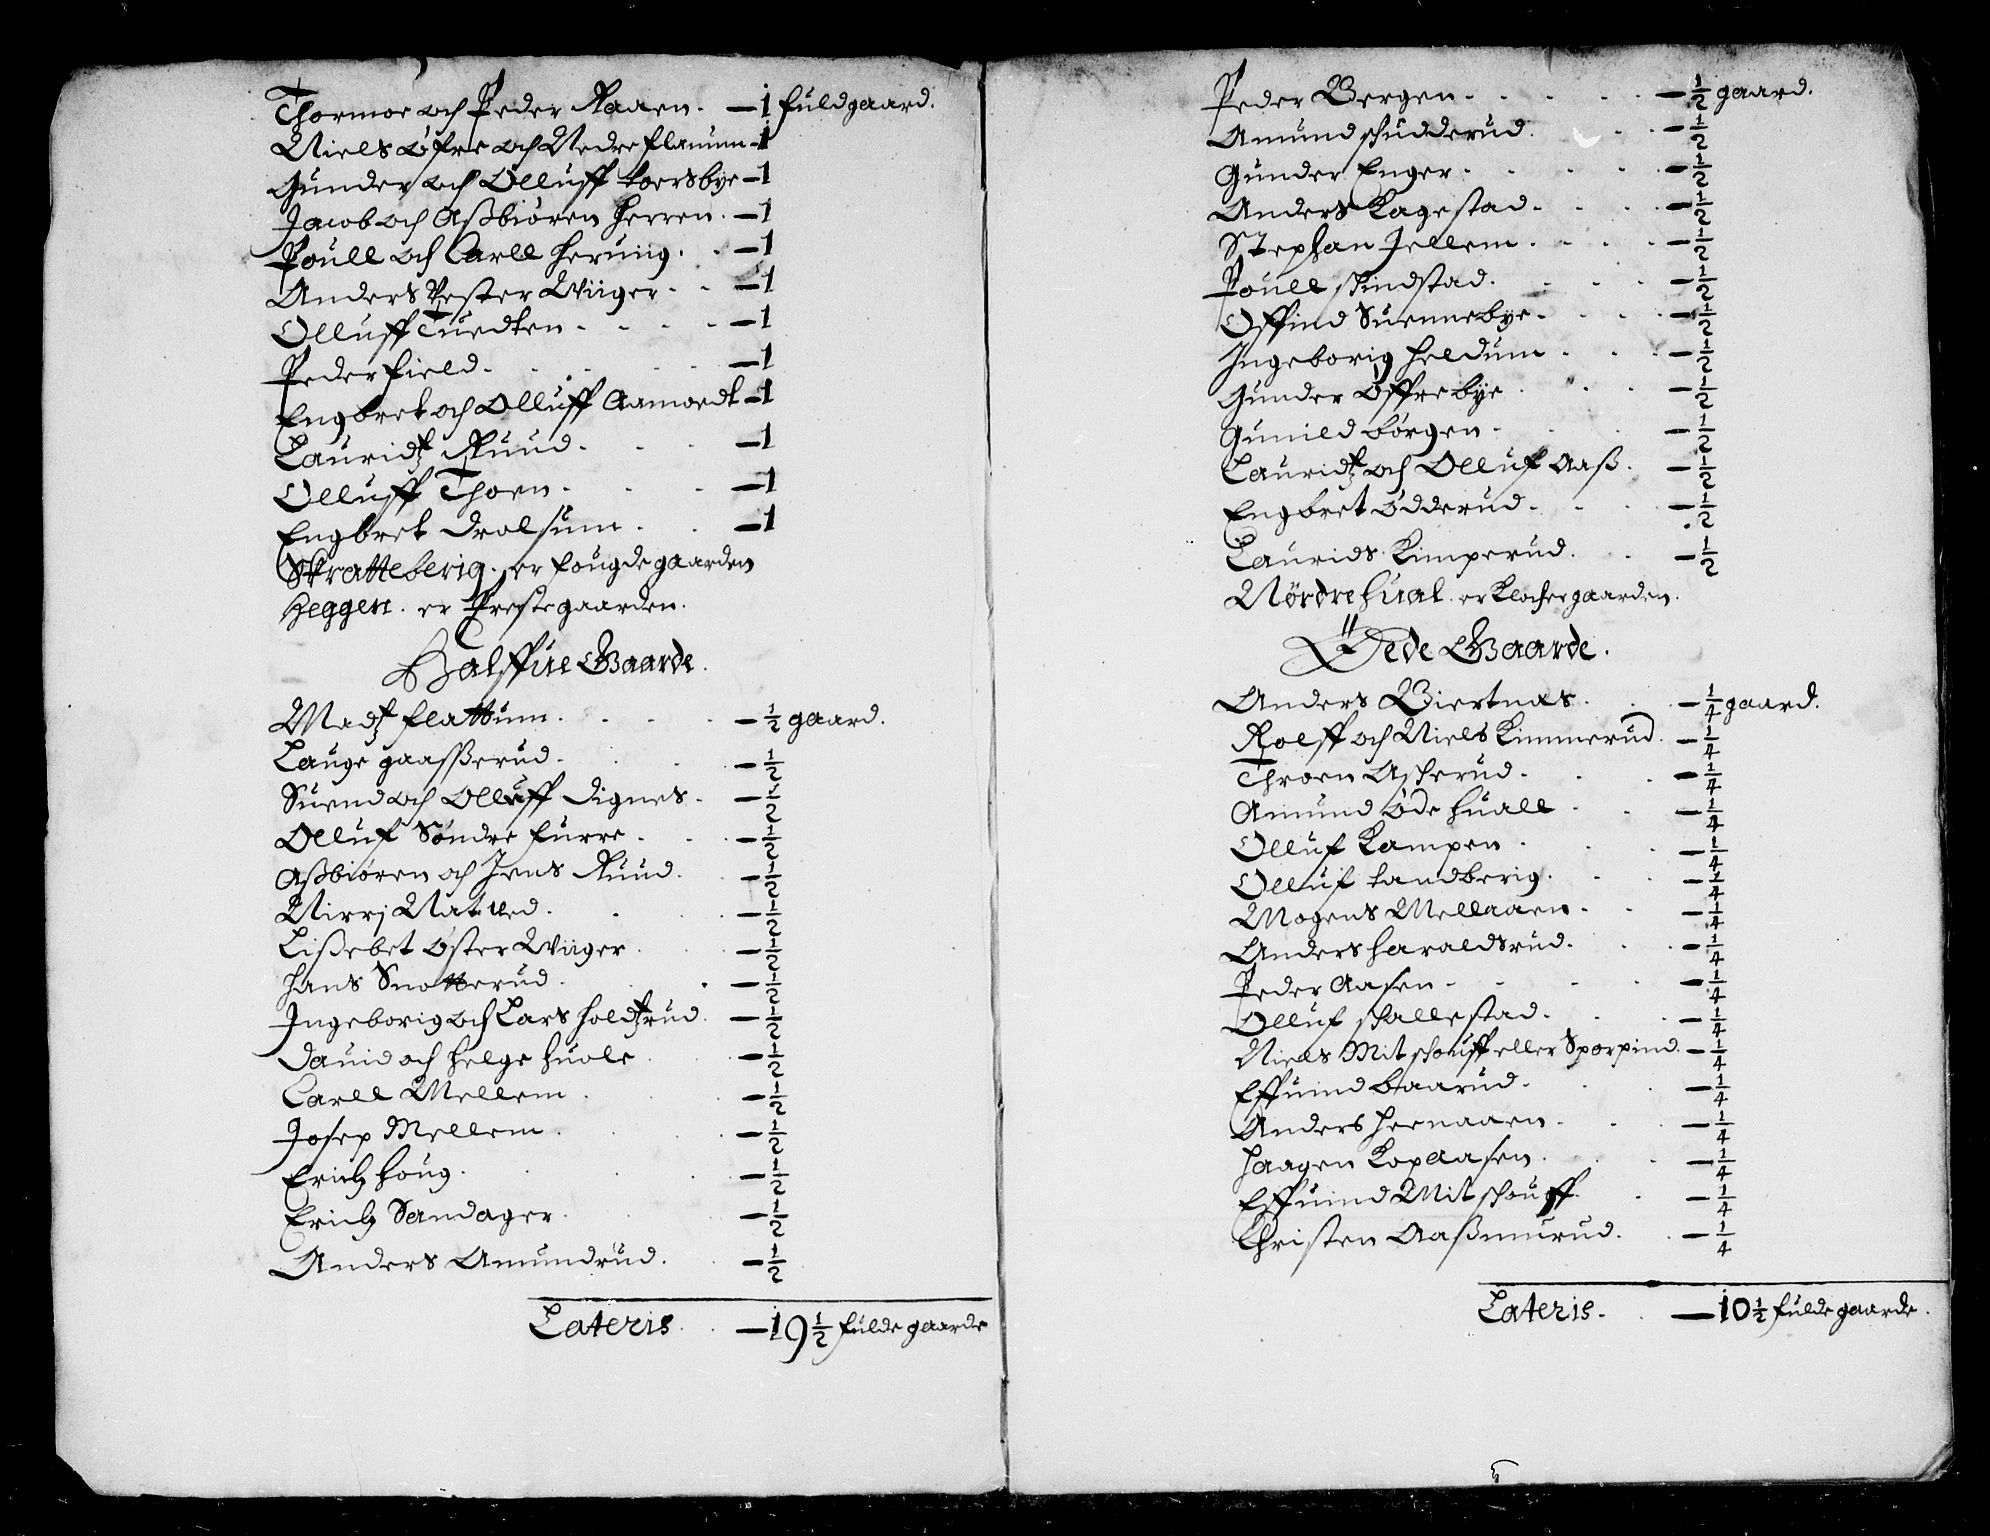 Thormoe och Peder Raaen. — 1 fuldgaard.
Niels öfre och Nedre flanum — 1
Gunder och Olluff toersbye — 1
Jacob och Aßbiören Herren. — 1
Pouell och Carll herung. — 1
Anders Vester Wiiger — 1
Olluff Tuedten — 1
Peder field. — 1
Engbret och Olluff Aamoedt — 1
Lauridtz Ruud. — 1
Olluff Thoen. — 1
Engbret Drolsum. — 1
Skratteberig. er fougdegaarden
Heggen. er Prestegaarden.
Halffue Gaarde.
Madtz flattum. — 1/2 gaard.
Lauge gaasßerud. — 1/2
Suend och Olluff Dignes. — 1/2
Olluf Söndre furre. — 1/2
Aßbiören och Jens Ruud. — 1/2
Nirrj Natued. — 1/2
Lißebet öster Wiiger. — 1/2
Hans Snotterud. — 1/2
Ingeborig och Lars Holdtzrud. — 1/2
Dauid och Helge huole. — 1/2
Carll Mellem. — 1/2
Josep Mellem. — 1/2
Erich houg. — 1/2
Erich Sandager. — 1/2
Anders Amundrud. — 1/2
Lateris. — 19 1/2 fulde gaarde
Peder Bergen. — 1/2 gaard.
Amund skudderud. — 1/2
Gunder Enger. — 1/2
Anders Kagestad. — 1/2
Stephan Jellem. — 1/2
Pouell skindstad. — 1/2
Offind Suennebye. — 1/2
Ingeborig heldum. — 1/2
Gunder Öffrebye. — 1/2
Gunild börgen. — 1/2
Lauridtz och Olluf Aaß. — 1/2
Engbret ödderud. — 1/2
Laurids Kimperud. — 1/2
Nördre hual. er Klockergaarden.
Öede Gaarde.
Anders Biertnæs. — 1/4 gaard.
Roelff och Niels Kimmerud. — 1/4
Throen Askerud. — 1/4
Amund öde huall — 1/4
Olluf Kampen. — 1/4
Olluf tandberig. — 1/4
Mogens Mellaaen. — 1/4
Anders haraldsrud. — 1/4
Peder Aasen. — 1/4
Olluf skallestad. — 1/4
Niels Mitskouff eller Sporpind. — 1/4
Effuind baarud. — 1/4
Anders hernaaen. — 1/4
Haagen Kopaasen. — 1/4
Effuind Mitskouff. — 1/4
Christen Aaßmurud. — 1/4
Lateris. — 10 1/2 fulde gaarde.